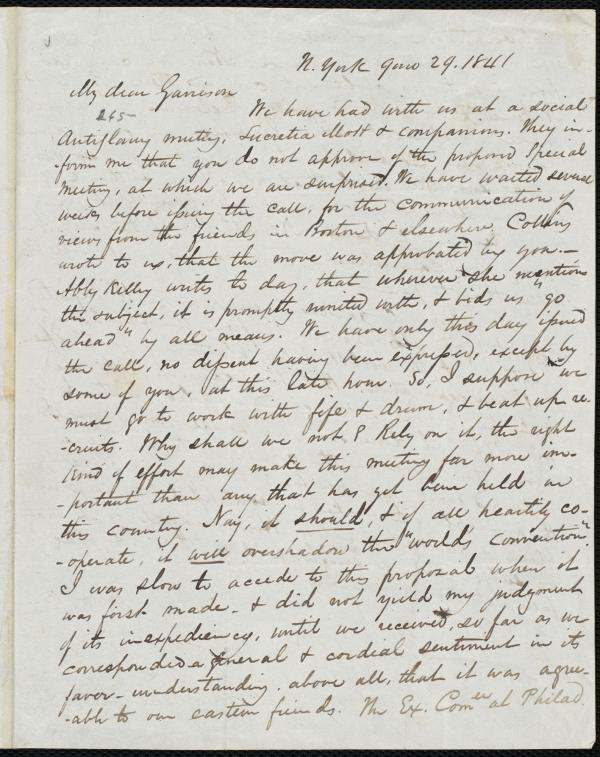 N. York Nov 29. 1841
My dear Garrison
265
We have had with us at a social
Antislavery meeting, Lucretia Mott & companions. They in-
-form me that you do not approve of the proposed Special
Meeting, at which we are surprised. We have waited several
weeks before issuing the call, for the communication of
views from the friends in Boston & elsewhere. Collins
wrote to us, that the move was approbated by you.—
Abby Kelley writes to day, that wherever she mentions
this subject, it is promptly united with, & bids us "go
ahead" by all means. We have only this day issued
the call, no dissent having been expressed, except by
some of you, at this late hour. So, I suppose we
must go to work with fife & drum, & beat up re-
-cruits. Why shall we not? Rely on it, the right
kind of effort may make this meeting far more im-
-portant than any that has yet been held in
this country. Nay, it should, & if all heartily co-
-operate, it will overshadow the "world's convention".
I was slow to accede to this proposal when it
was first made - & did not yield my judgment
of its inexpediency, until we received, so far as we
corresponded a general & cordial sentiment in its
favor - understanding, above all, that it was agree-
-able to our eastern friends. The Ex. Comee at Philad.